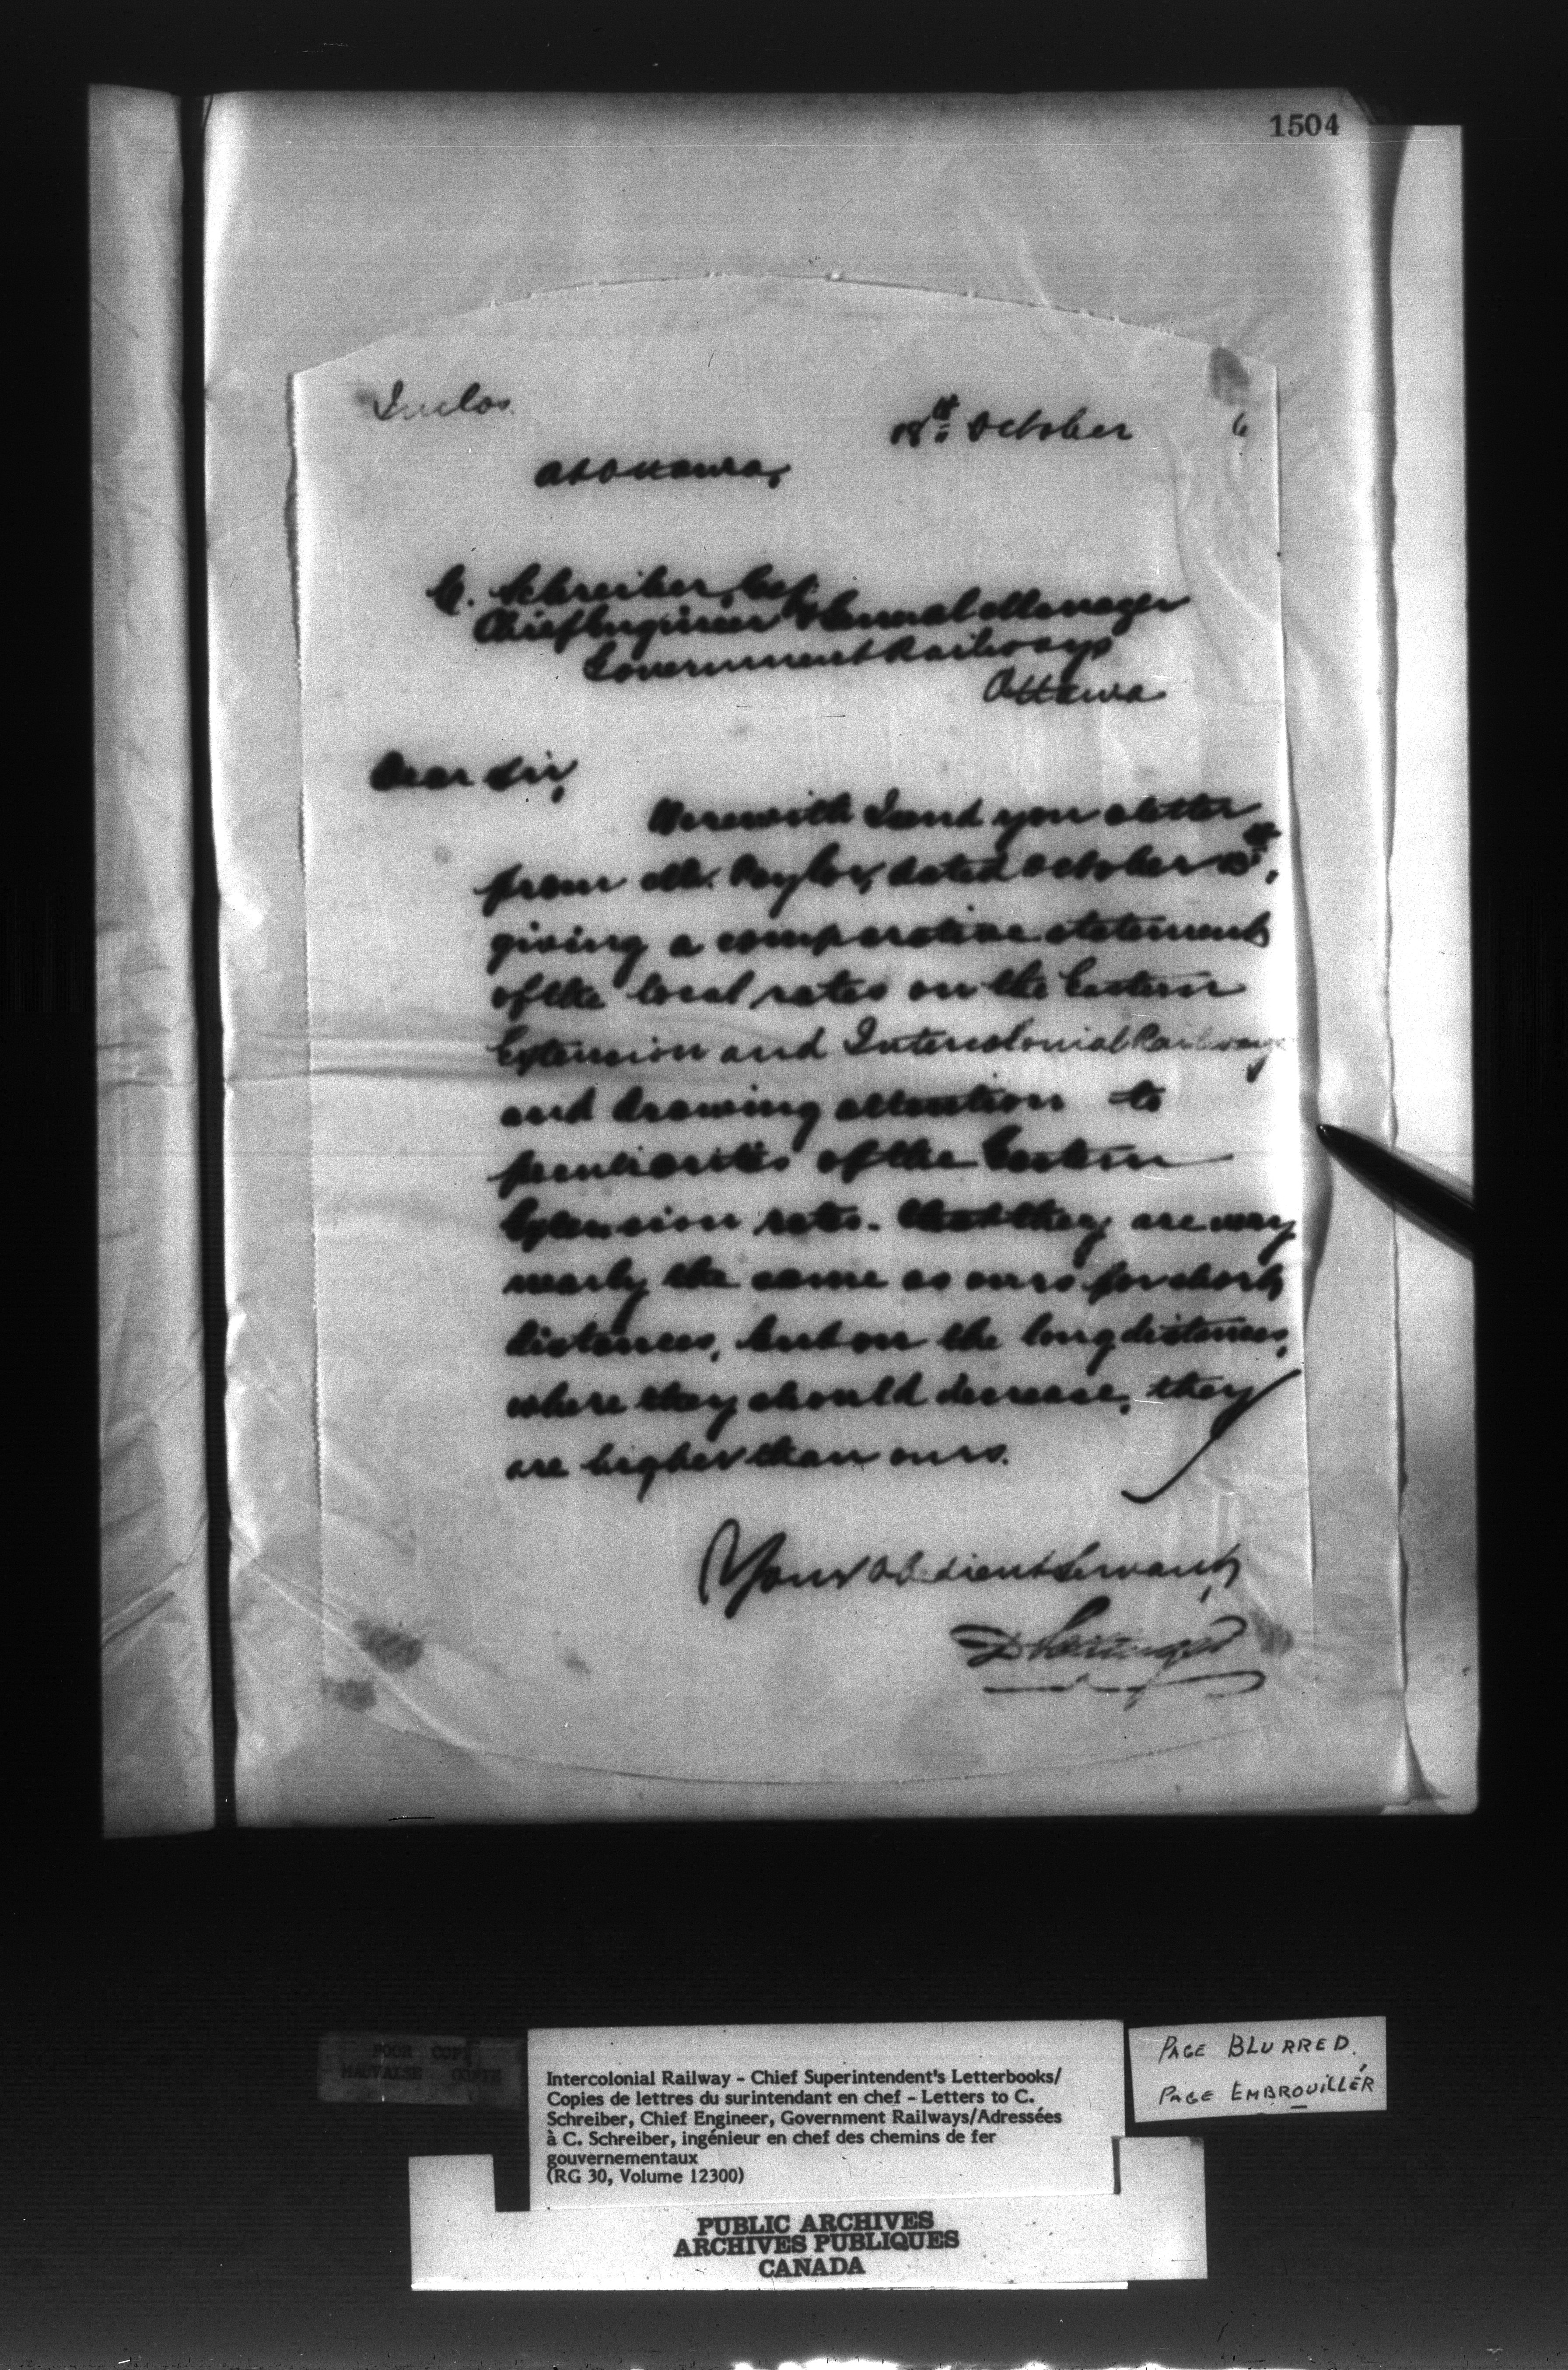 1504
Inclos.
18th October 6
At Ottawa,
C. Schreiber, Esq
Chief Engineer & General Manager
Government Railways
Ottawa
Dear Sir,
Herewith I send you a letter
from Mr. Taylor, dated October 15th,
giving a comparative statement
of the local rates on the Eastern
Extension and Intercolonial Railways
and drawing attention to
peculiarities of the Eastern
Extension rates. That they are very
nearly the same as ours for short
distances, but on the long distances,
where they should decrease, they
are higher than ours.
Your obedient Servant,
D Pottinger
POOR COPY
MAUVAISE COPIE
Intercolonial Railway - Chief Superintendent's Letterbooks/
Copies de lettres du surintendant en chef - Letters to C.
Schreiber, Chief Engineer, Government Railways/Adressées
à C. Schreiber, ingénieur en chef des chemins de fer
gouvernementaux
(RG 30, Volume 12300)
PAGE BLURRED.
PAGE EMBROUILLÉR
PUBLIC ARCHIVES
ARCHIVES PUBLIQUES
CANADA